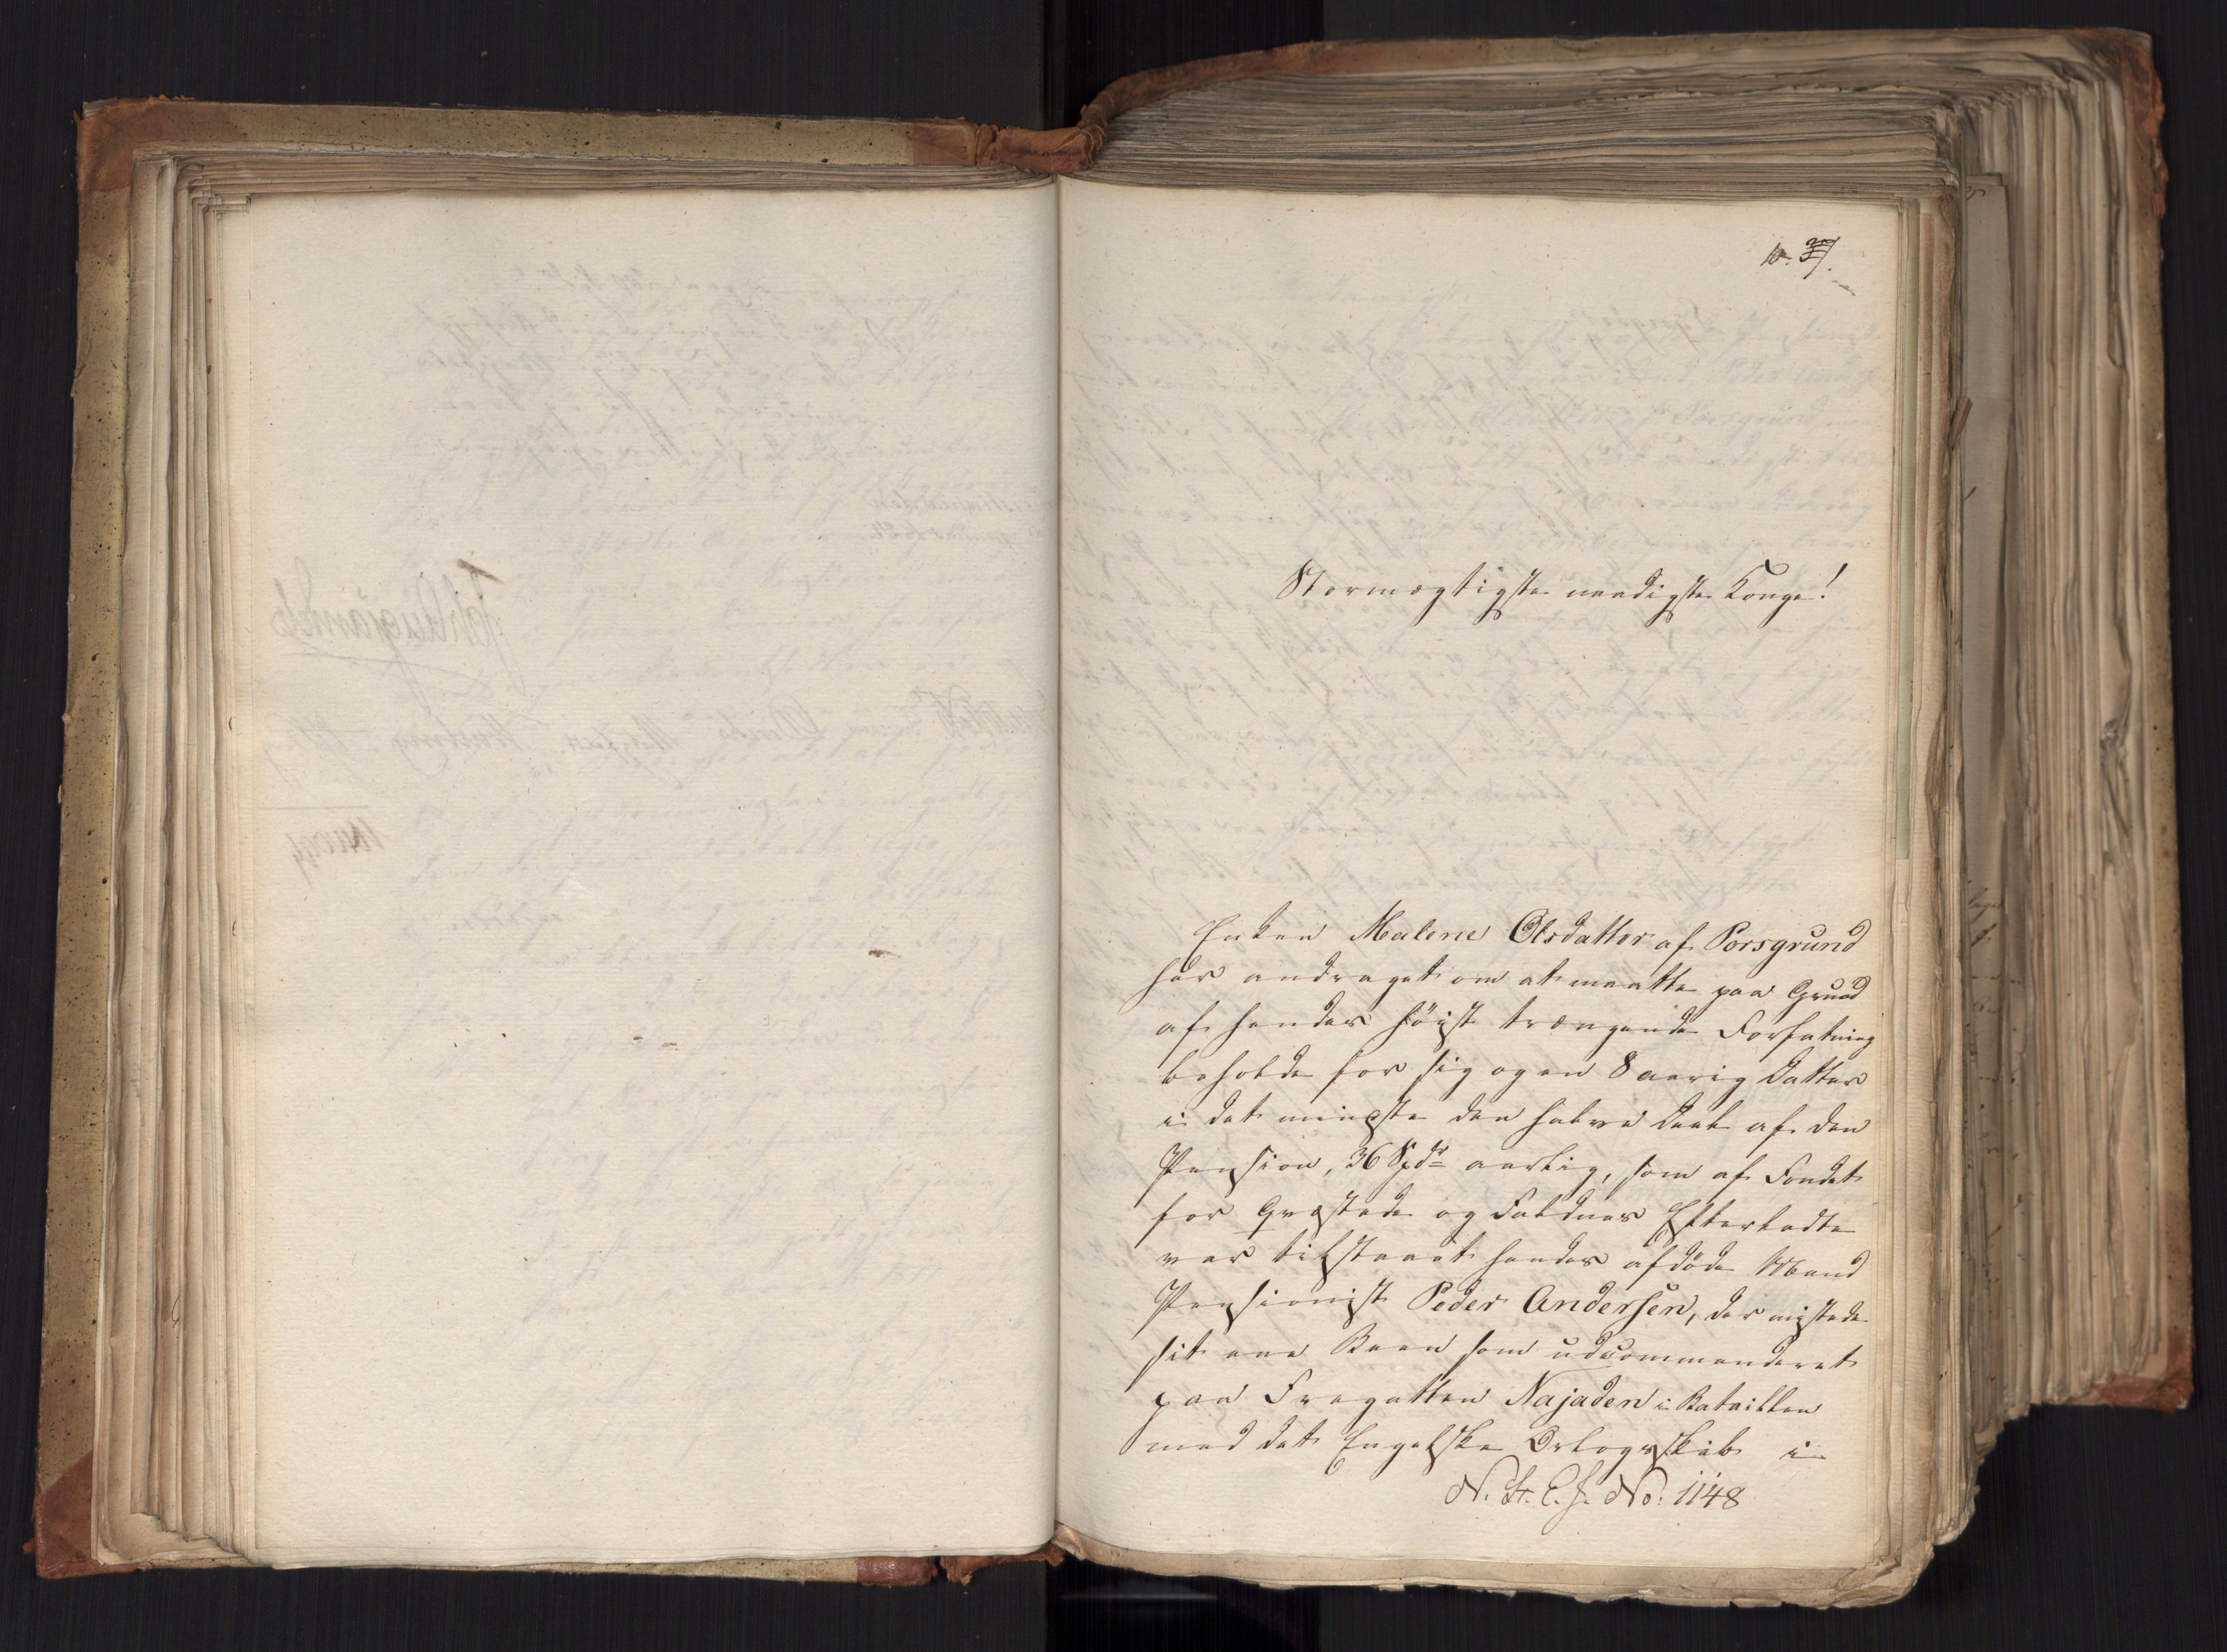 Stormægtigste naadigste Konge!
Enken Malene Olsdatter af Porsgrund
har andraget om at maatte paa Grund
af hendes høist trængende Forfatning
beholde for sig og en 8 aarig Datter
i det mindste den halve Deel af den
Pension, 36 Spdr aarlig, som af Fondet
for Qvæstede og Faldnes Efterladte
var tilstaaet hendes afdøde Mand
Pensionist Peder Andersen, der mistede
sit ene Been som udcommanderet
paa Fregatten Najaden i Bataillen
med det Engelske Orlogsskib i
N. St. C. J. No: 1148